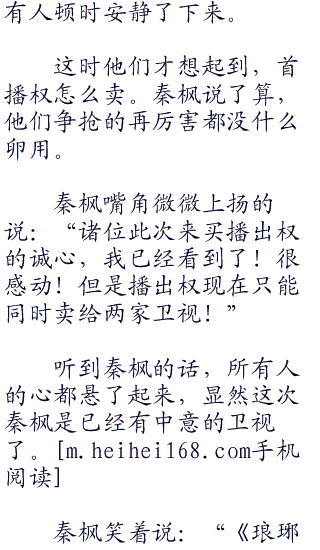 有人顿时安静了下来。
这时他们才想起到，首
播权怎么卖。秦枫说了算，
他们争抢的再厉害都没什么
卵用。
秦枫嘴角微微上扬的
说：“诸位此次来买播出权
的诚心，我已经看到了！很
感动！但是播出权现在只能
同时卖给两家卫视！”
听到秦枫的话，所有人
的心都悬了起来，显然这次
秦枫是已经有中意的卫视
了。[m.heihei168.com手机
阅读]
秦枫笑着说：“《琅琊